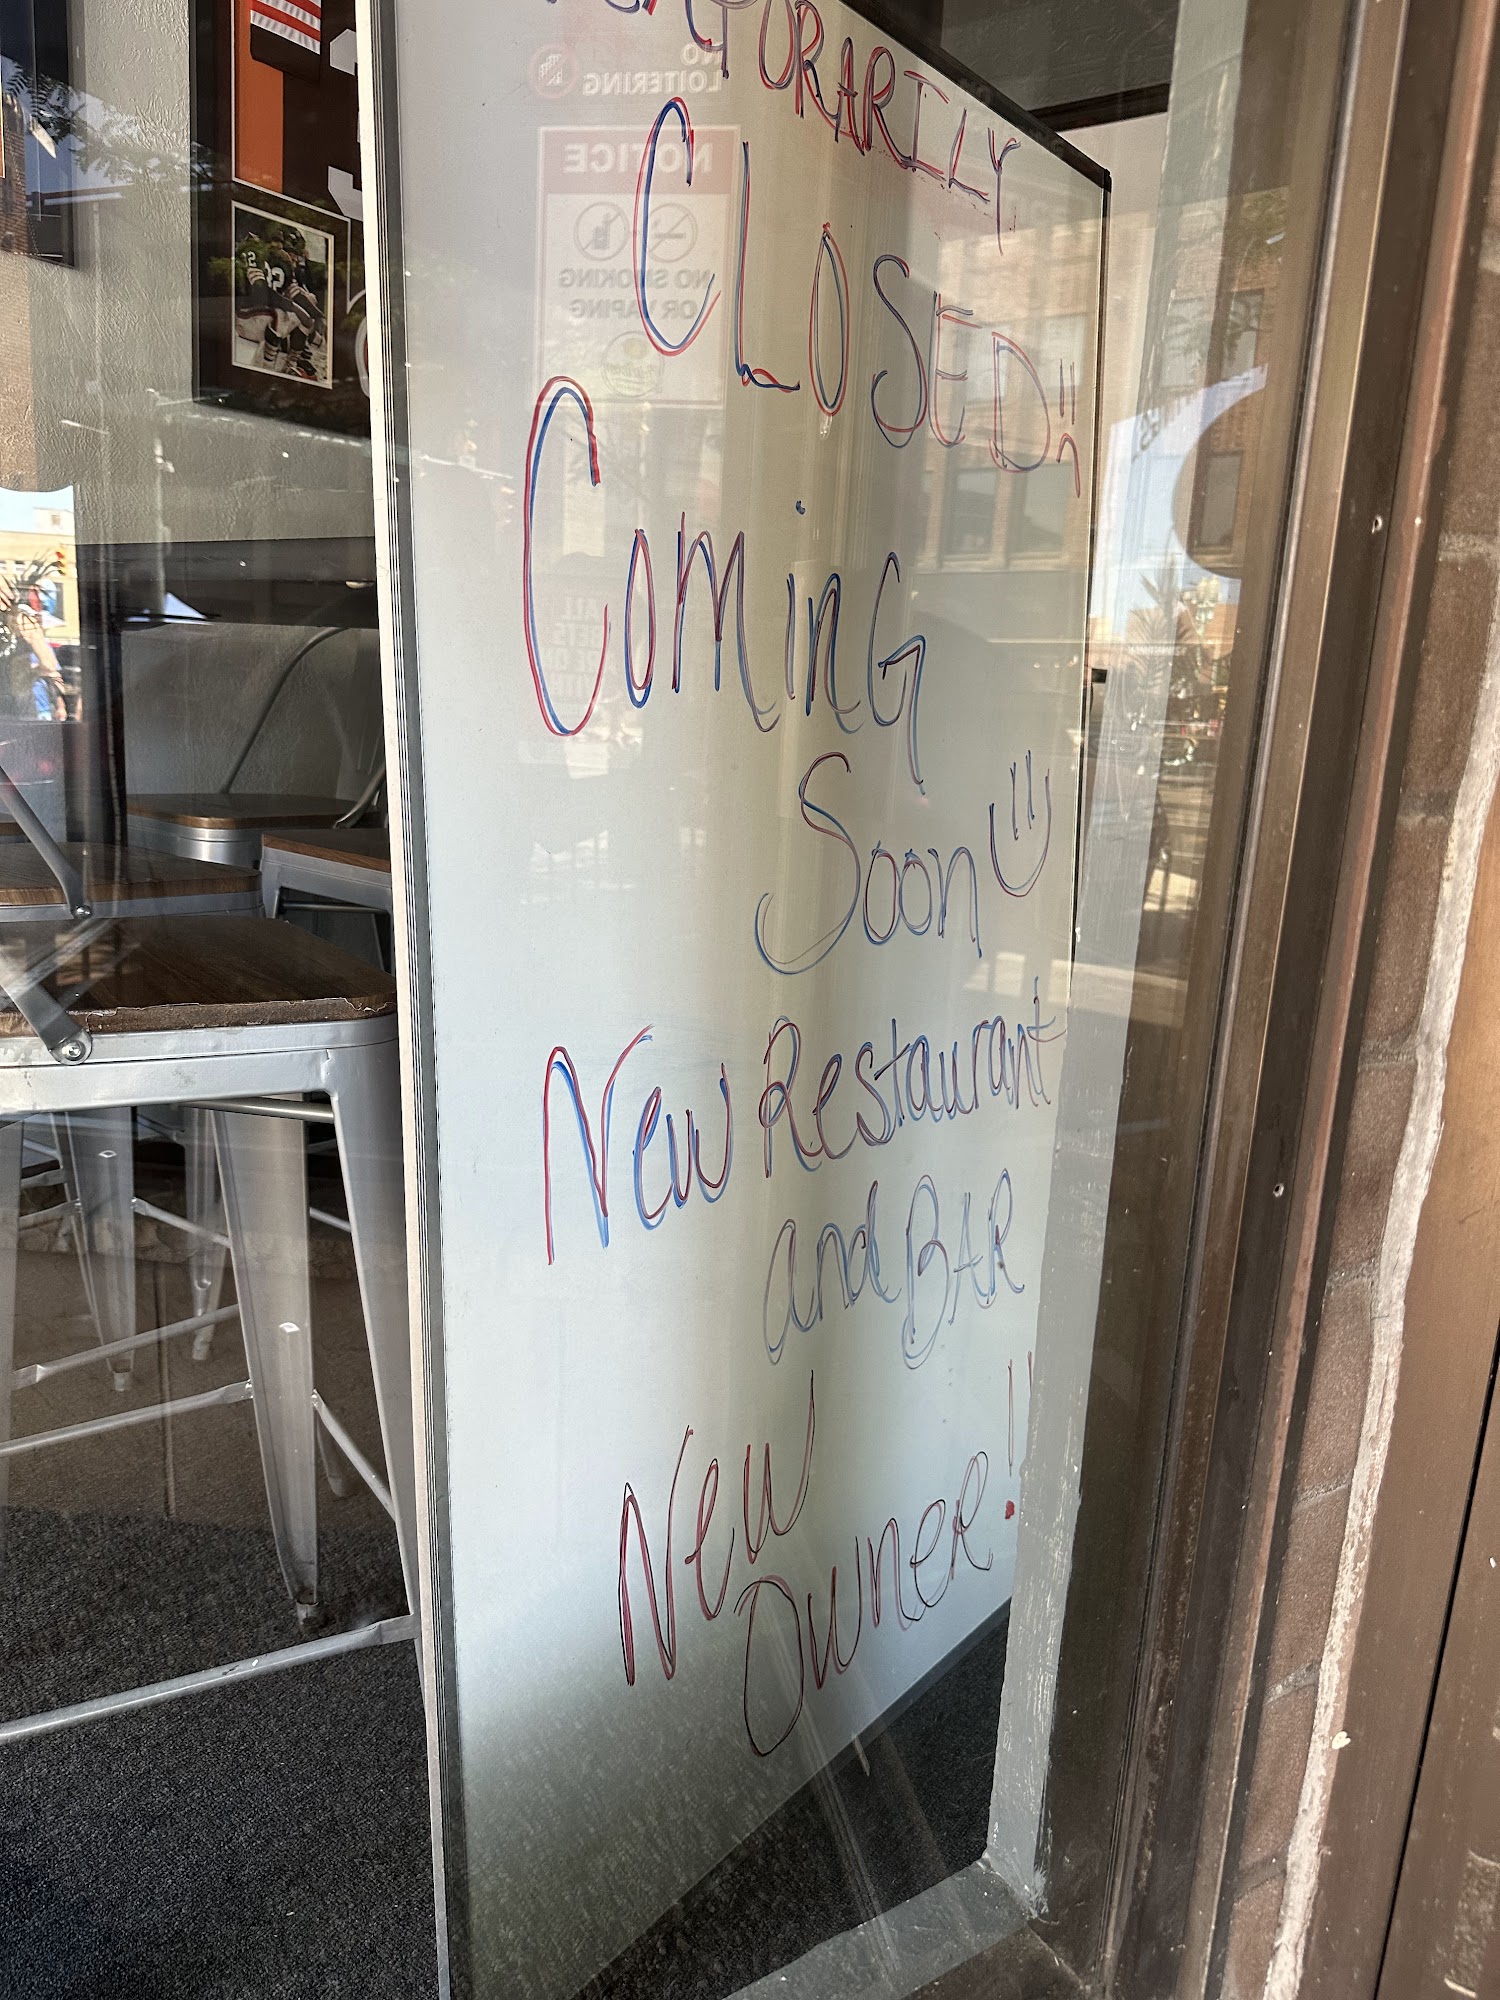 TEMPORARILY
CLOSED!!
Coming
Soon
New Restaurant
and BAR
New
Owner!!
NO
LOITERING
NOTICE
NO SMOKING
OR VAPING